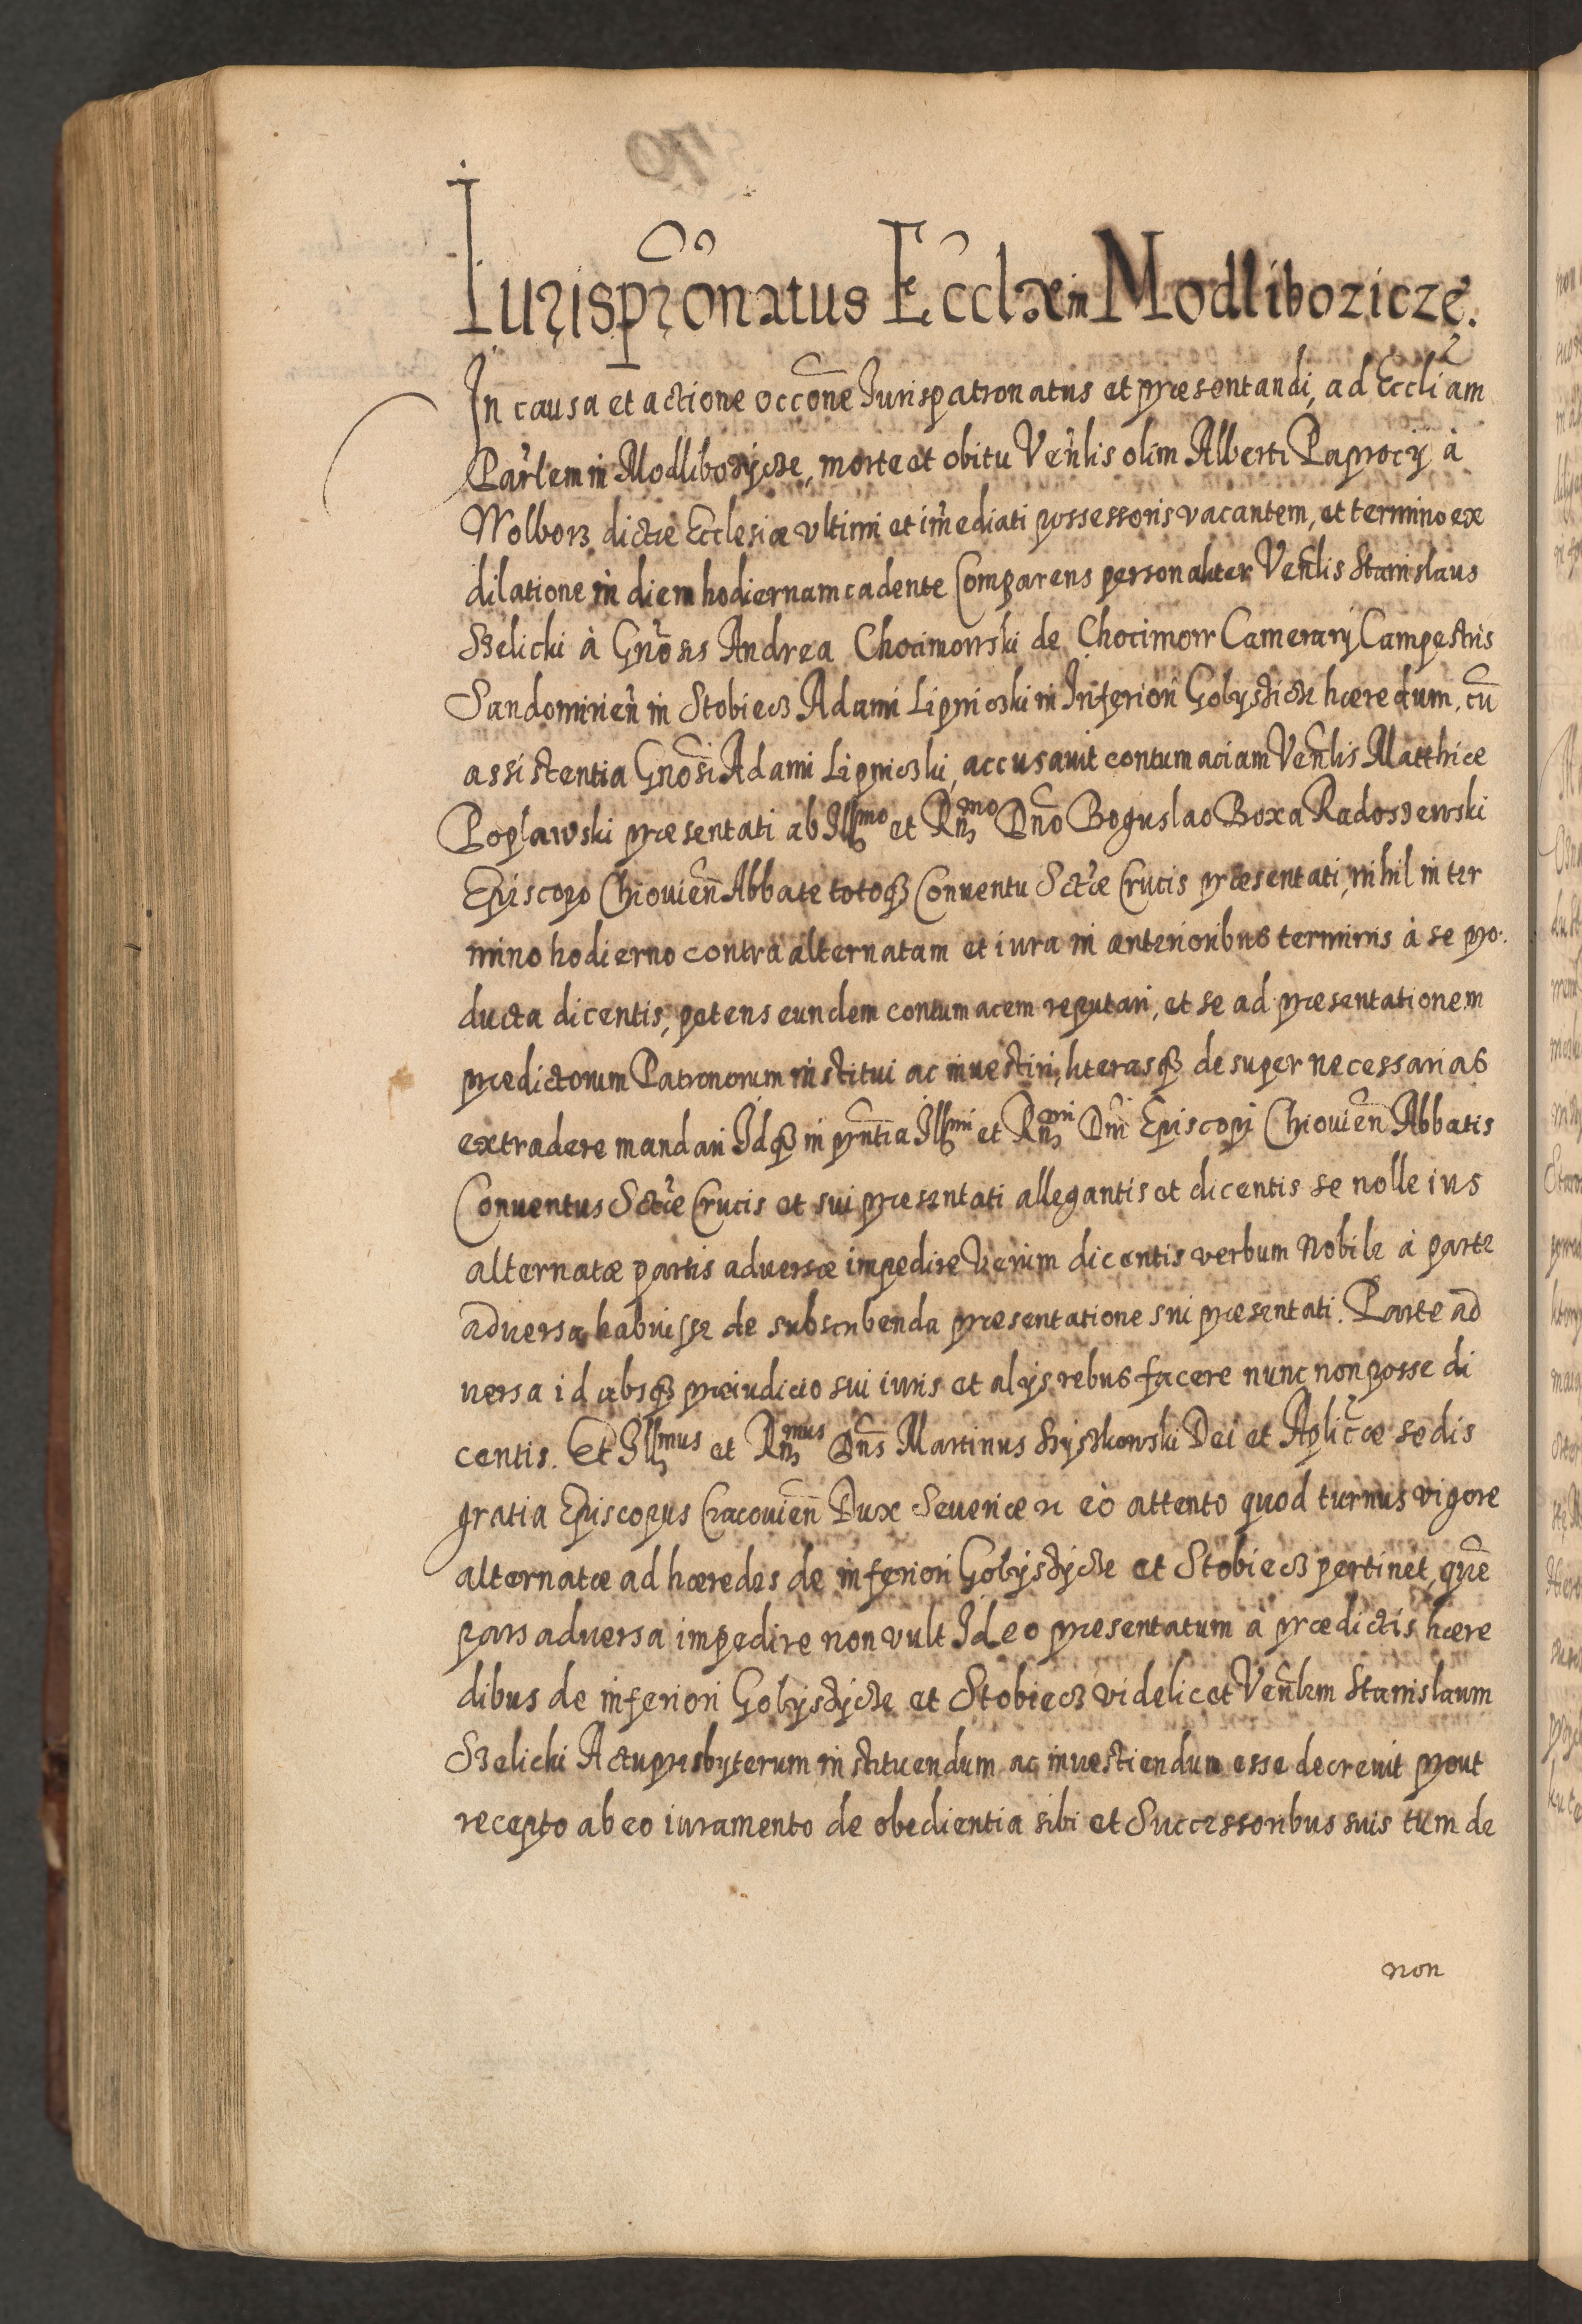 Jurisprõnatus Ecclæ in Modliborzicze.
In causa et actione occõne Jurispatronatus et præsentandi, ad Eccliam
Parlem in Modliborzycze, morte et obitu Venlis olim Alberti Paprocij à
Wolborz dictæ Ecclesiæ vltimi et im̃ediati possessoris vacantem, et termino ex
dilatione in diem hodiernam cadente Comparens personaliter Venlis Stanislaus
Szelicki à Gnõsis Andrea Chocimowski de Chocimow Camerarij Campestris
Sandomirień in Stobiecz Adami Lipniczki in Inferiori Golyszicze hæredum, cũ
assistentia Gnõsi Adami Lipniczki, accusauit contumaciam Venlis Matthiæ
Poplawski præsentati ab Illmo et Rñmo Dño Boguslao Boxa Radoszewski
Episcopo Chiouień Abbate totoq3 Conuentu Sctæ Crucis præsentati, nihil in ter
mino hodierno contra alternatam et iura in anterioribus terminis à se pro.
ducta dicentis, petens eundem contumacem reputari, et se ad præsentationem
prædictorum Patronorum institui ac inuestiri, literasq3 desuper necessarias
extradere mandari Idq3 in pñtia Illmi et Rñmi Dñi Episcopi Chiouień Abbatis
Conuentus Sctæ Crucis et sui præsentati allegantis et dicentis se nolle ius
alternatæ partis aduersæ impedire Verum dicentis verbum Nobile à parte
aduersa habuisse de subscribenda præsentatione sui præsentati. Parte ad
uersa id absq3 præiudicio sui iuris et alijs rebus facere nunc non posse di
centis. Et Illmus et Rñmus Dñs Martinus Szyszkowski Dei et Aplicæ sedis
gratia Episcopus Cracouień Dux Seueriæ eò attento quod turnus vigore
alternatæ ad hæredes de inferiori Golyszycze et Stobiecz pertinet, quẽ
pars aduersa impedire non vult Ideo præsentatum à prædictis hære
dibus de inferiori Golyszycze et Stobiecz videlicet Venlem Stanislaum
Szelicki Actupresbyterum instituendum ac inuestiendum esse decreuit prout
recepto ab eo iuramento de obedientia sibi et Successoribus suis tum de
non